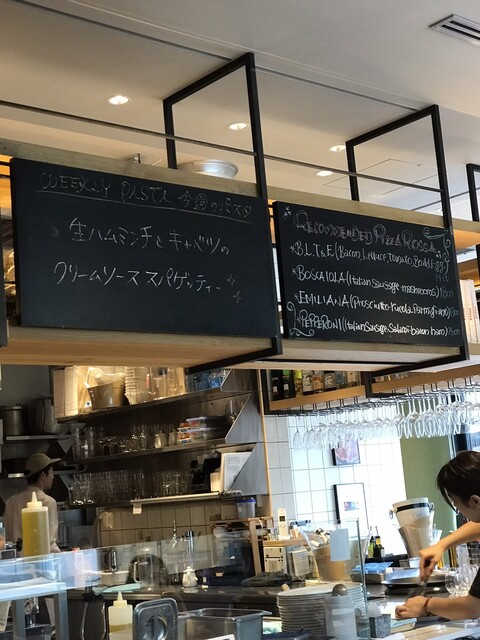 WEEKLY PASTA 今週のパスタ
生ハムミンチとキャベツの
クリームソーススパゲッティー
RECOMMENDED PIZZA ROSSA
*B.L.T&E (Bacon, Lettuce, Tomato, Boiled Egg)
*BOSCAIOLA (Italian sausage・mushrooms)
*EMILIANA (Prosciutto・rucola・Parmigiano)
*PEPPERONI (Italian Sausage・Salami・bacon・